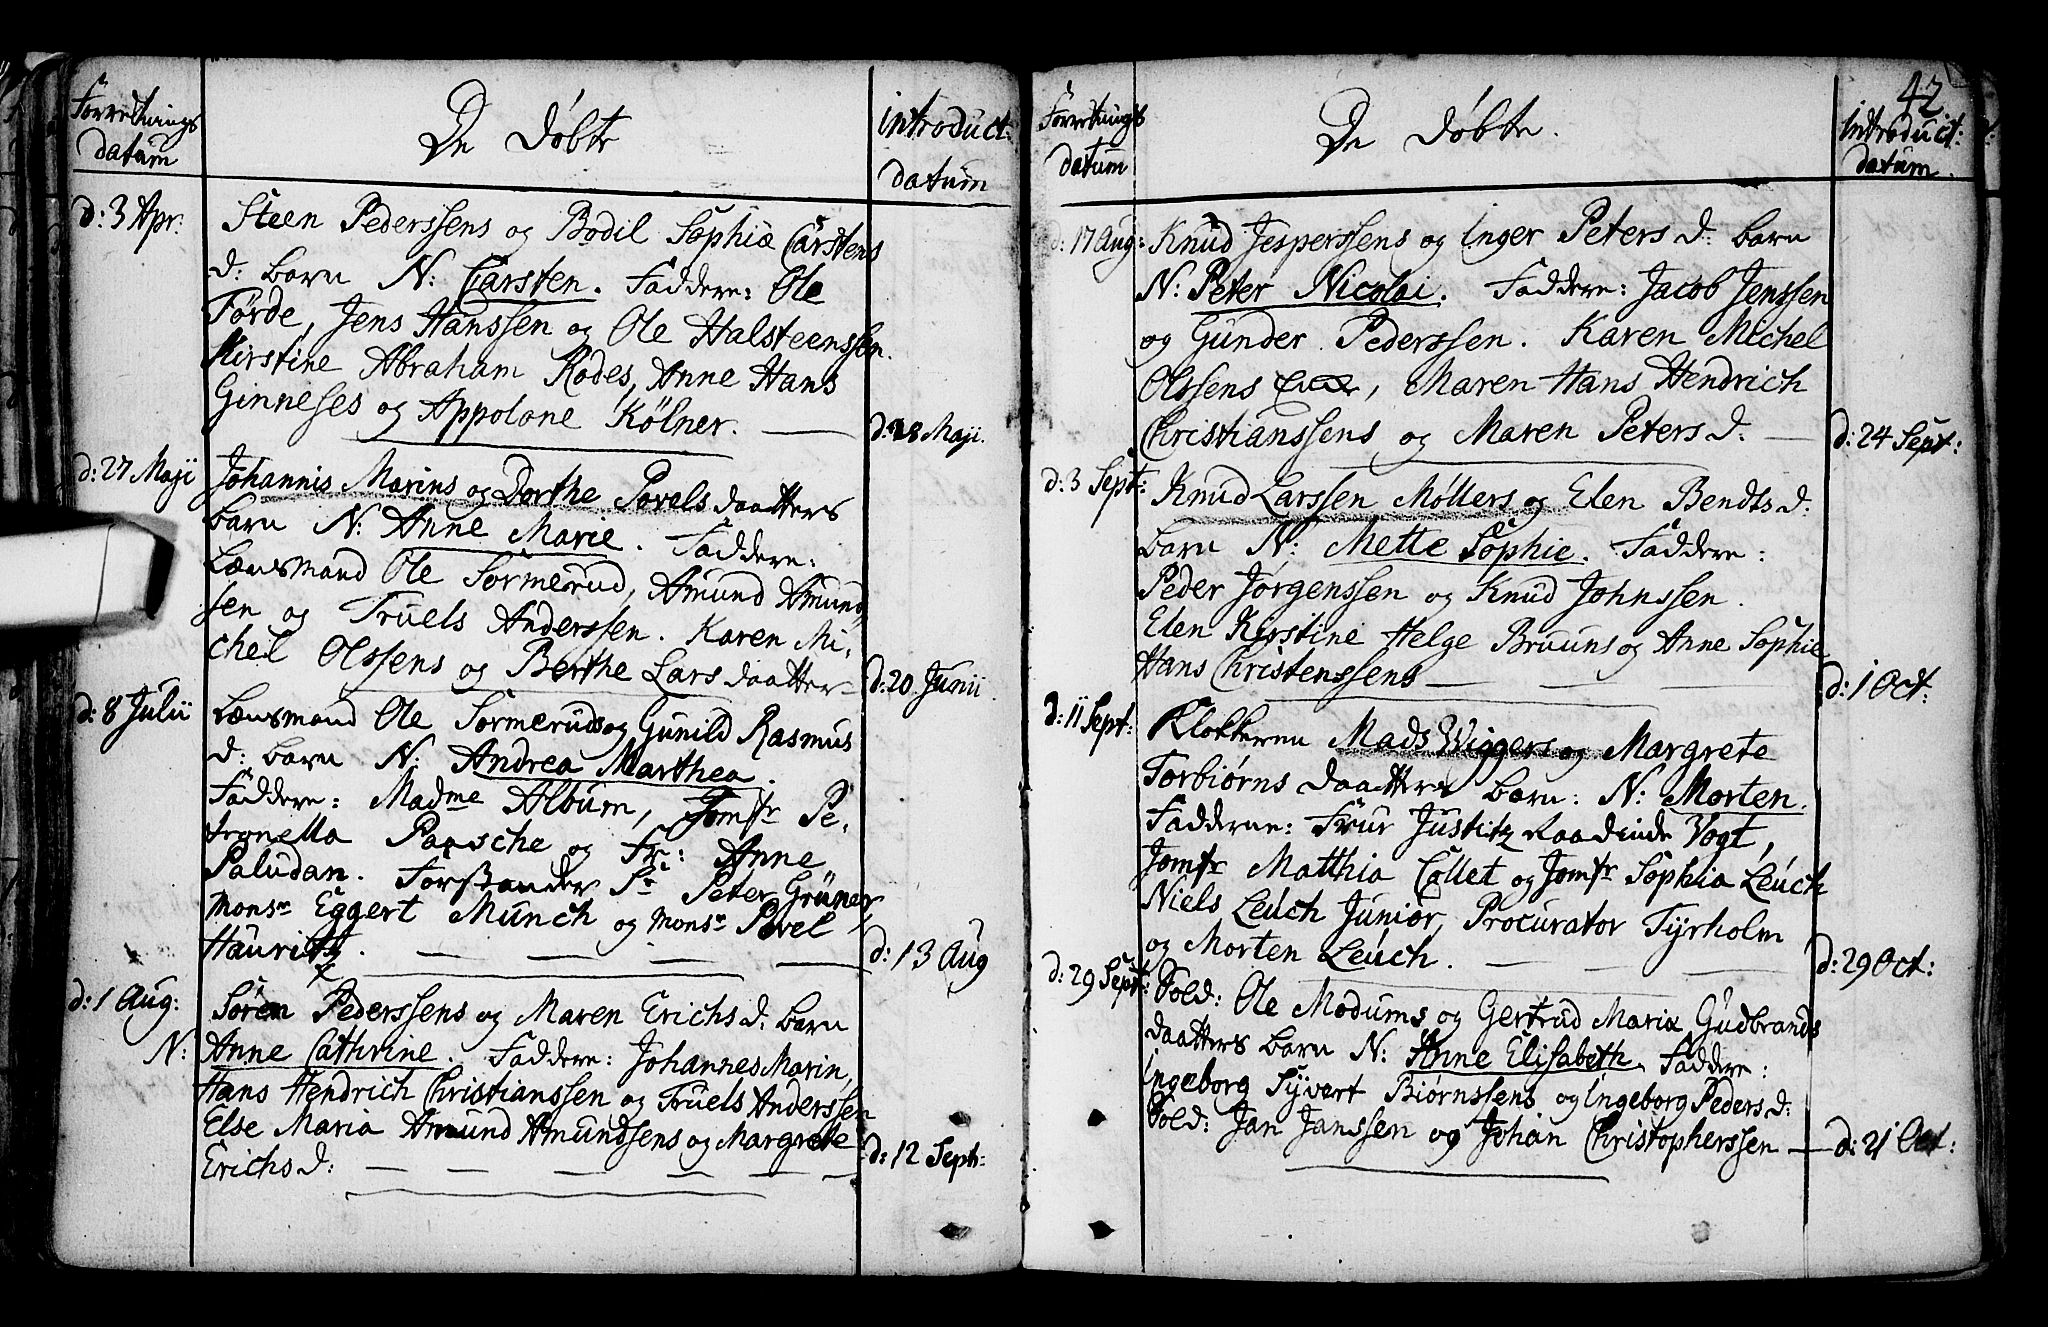 Forretnings
datum
De Døbte
introduct:
datum
d: 3 Apr.
Steen Pederssens og Bodil Sophiæ Carstens
d: barn N: Carsten. Faddere: Ole
Førde, Jens Hanssen og Ole Halsteenssen.
Kirstine Abraham Rodes, Anne Hans
Ginneses og Appolone Kölner. —
d: 28 Maji.
d: 27 Maji
Johannis Marins og Dorthe Povels daatters
barn N: Anne Marie. Faddere:
Lænsmand Ole Sørmerud, Amund Amund
sen og Truels Anderssen. Karen Mi,
chel Olssens og Berthe Lars daatter —
d: 20 Junii.
d: 8 Julii
Lænsmand Ole Sørmeruds og Gunild Rasmus
d: barn N: Andrea Marthea.
Faddere: Madme Album, Jomfr Pe,
tronella Paasche og Fr: Anne
Paludan. Forstander Sr Peter Grüner,
Monsr Eggert Munch og Monsr Povel
Hauritz. — — — —
d: 13 Aug
d: 1 Aug:
Sören Pederssens og Maren Erichs d: barn
N: Anne Cathrine. Faddere: Johannes Marin,
Hans Hendrich Christianssen og Truels Anderssen
Else Maria Amund Amundsens og Margrete
Erichs d: — — — — —
d: 12 Sept:
42
Forretnings
datum
De Døbte.
introduct:
datum.
d: 17 Aug:
Knud Jesperssens og Inger Peters d: barn
N: Peter Nicolai. Faddere: Jacob Jenssen
og Gunder Pederssen. Karen Michel
Olssens, Maren Hans Hendrich
Christianssens og Maren Peters d. —
d: 24 Sept:
d: 3 Sept:
Knud Larssen Møllers og Elen Bendts d.
barn N: Mette Sophie. Faddere:
Peder Jørgenssen og Knud Johnssen.
Elen Kirstine Helge Bruuns og Anne Sophie
Hans Christenssens — — —
d: 1 Oct:
d: 11 Sept:
Klokkeren Mads Wiggers og Margrete
Torbiørns daatters barn: N: Morten.
Fadderne: Frue Justitz Raadinde Vogt,
Jomfr Matthia Collet og Jomfr Sophia Leuch
Niels Leuch Junior, Procurator Tyrholm
og Morten Leuch. — — —
d: 29 Oct:
d: 29 Sept:
Sold: Ole Modums og Gertrud Maria Gudbrands
daatters barn N: Anne Elisabeth. Faddere:
Ingeborg Syvert Biørnssens og Ingeborg Peders d:
Sold: Jan Janssen og Johan Christopherssen —
d: 21 Oct: